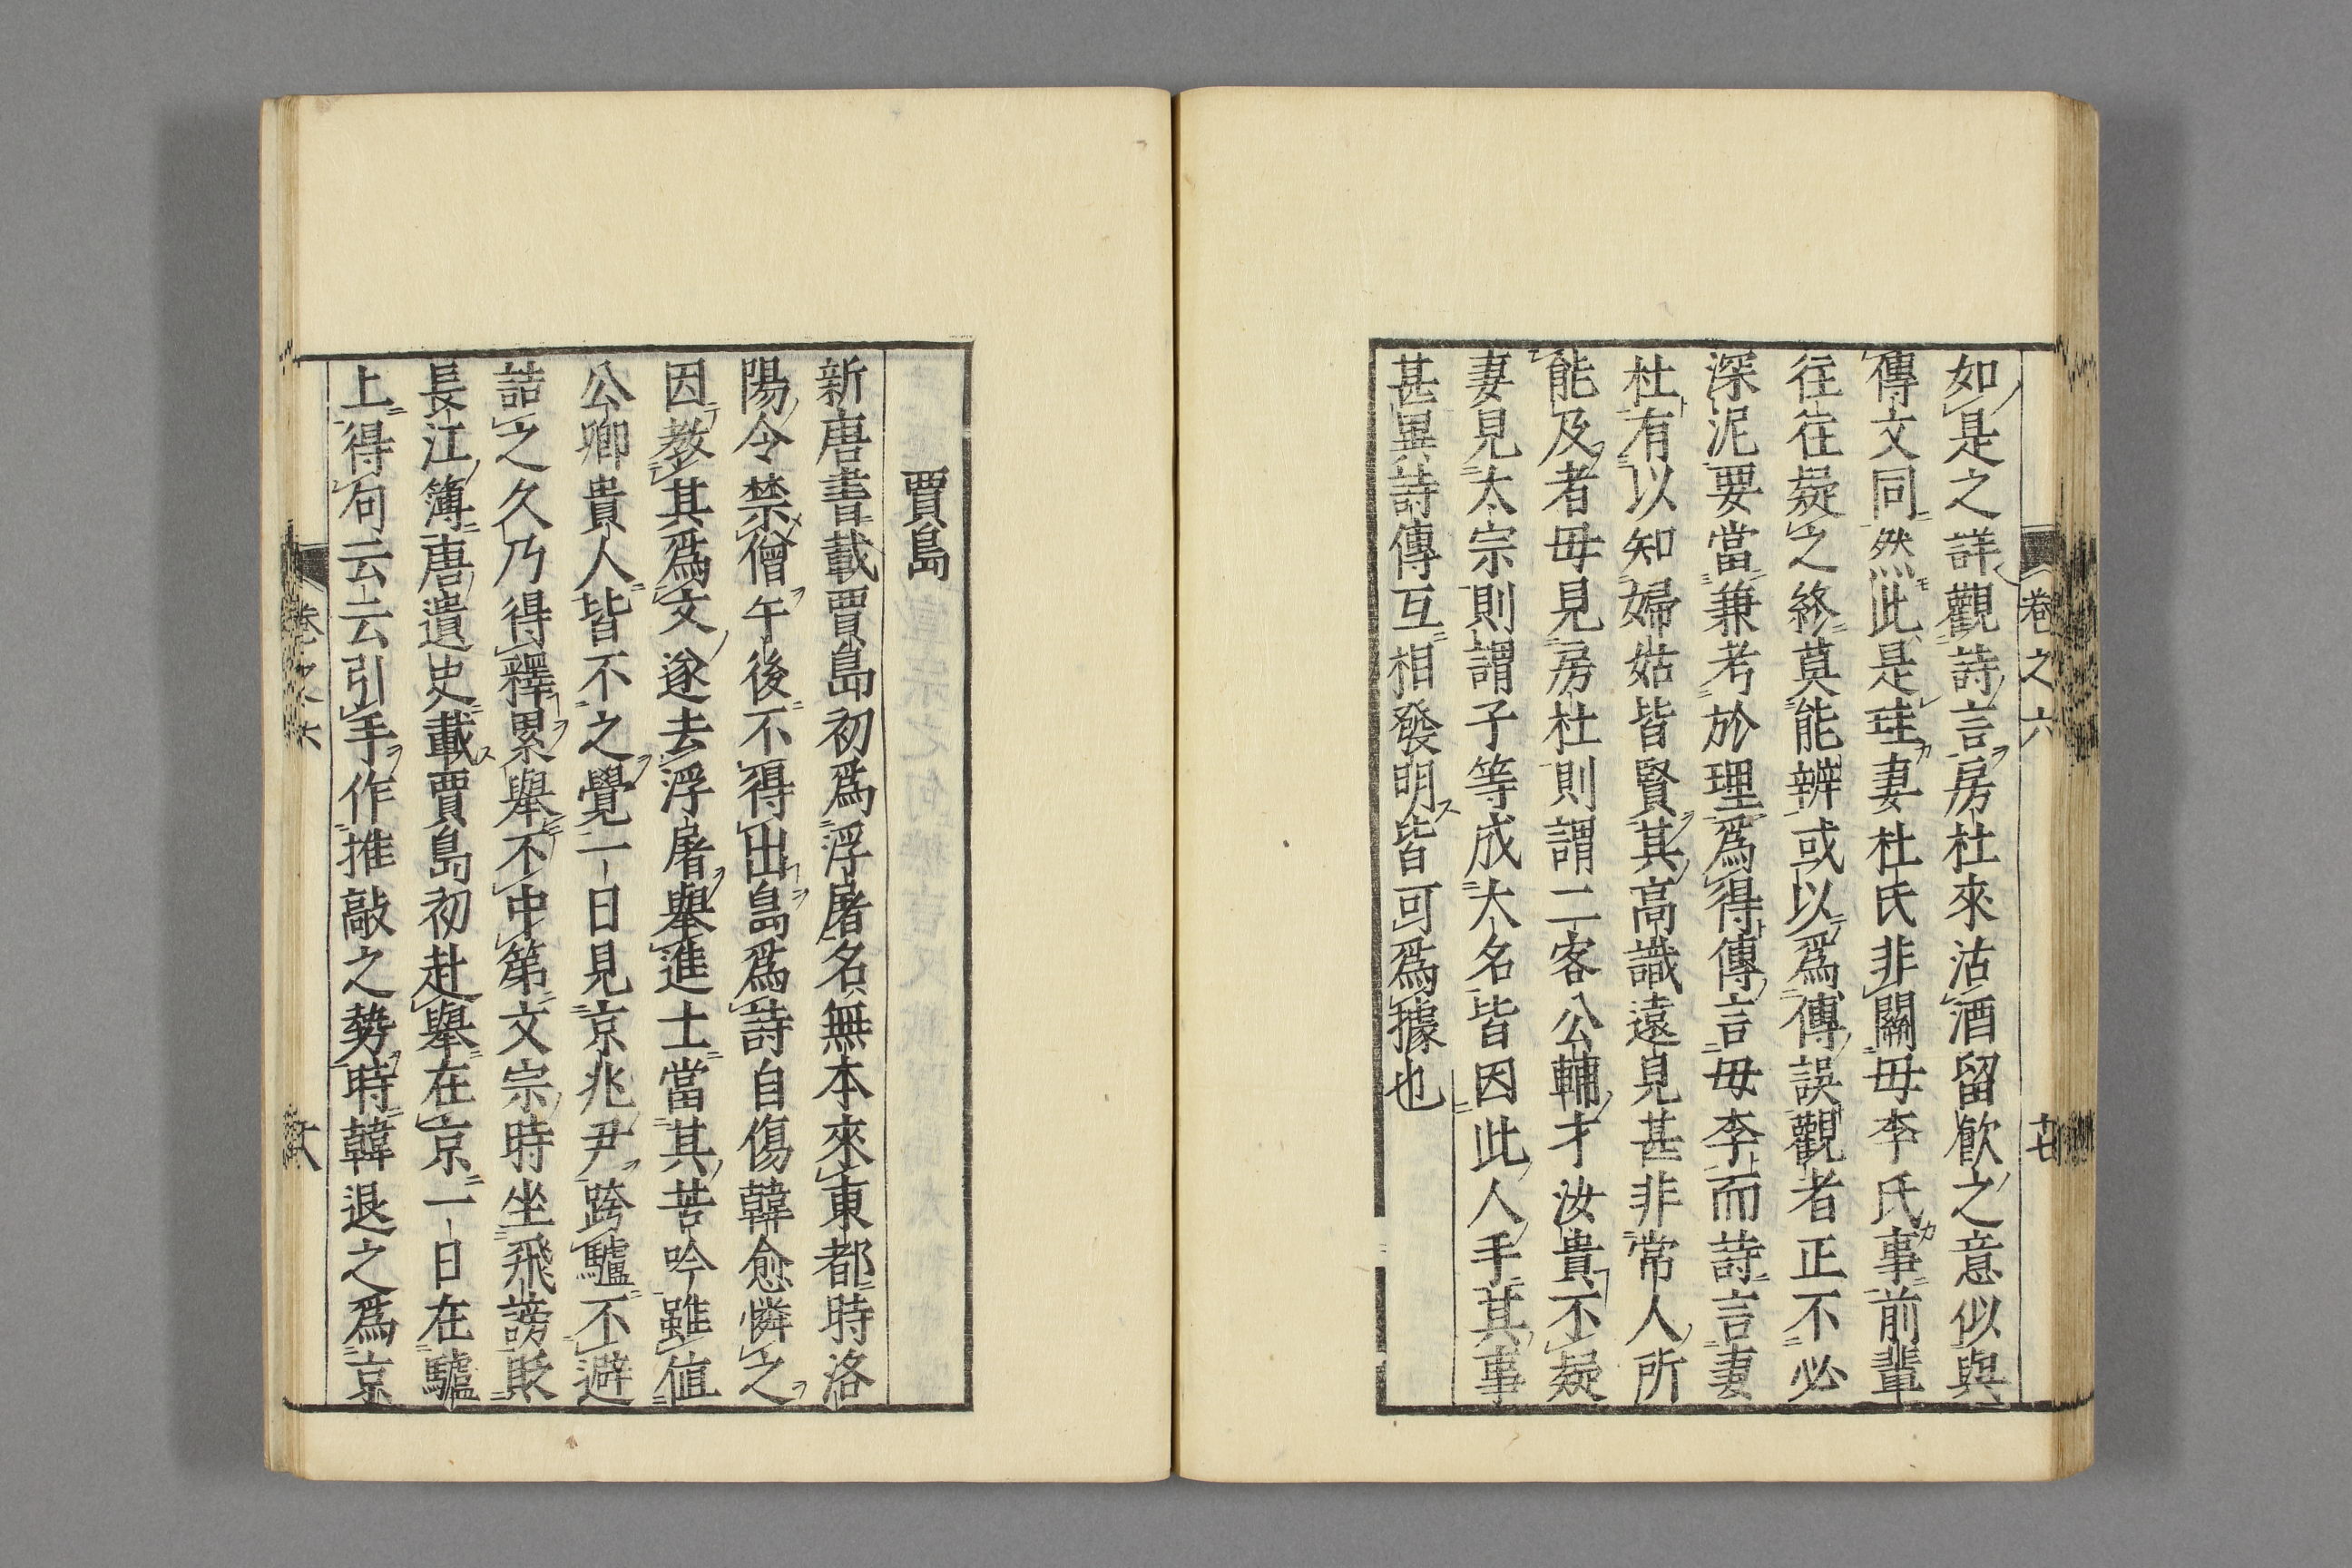 卷之六
廿
如是之詳觀詩言房杜來沽酒留飮之意似與
傳文同然此是珪妻杜氏非關母李氏事前輩
往往疑之終莫能辨或以爲傳誤觀者正不必
深泥要當兼考於理爲得傳言母李而詩言妻
杜有以知婦姑皆賢其高識遠見甚非常人所
能及者母見房杜則謂二客公輔才汝貴不疑
妻見太宗則謂子等成大名皆因此人手其事
甚異詩傳互相發明皆可爲據也
賈島
新唐書載賈島初爲浮屠名無本來東都時洛
陽令禁僧午後不得出島爲詩自傷韓愈憐之
因教其爲文遂去浮屠舉進士當其苦吟雖値
公卿貴人皆不之覺一日見京兆尹跨驢不避
詰之久乃得釋累舉不中第文宗時坐飛謗貶
長江簿唐遺史載賈島初赴舉在京一日在驢
上得句云云引手作推敲之勢時韓退之爲京
卷之六